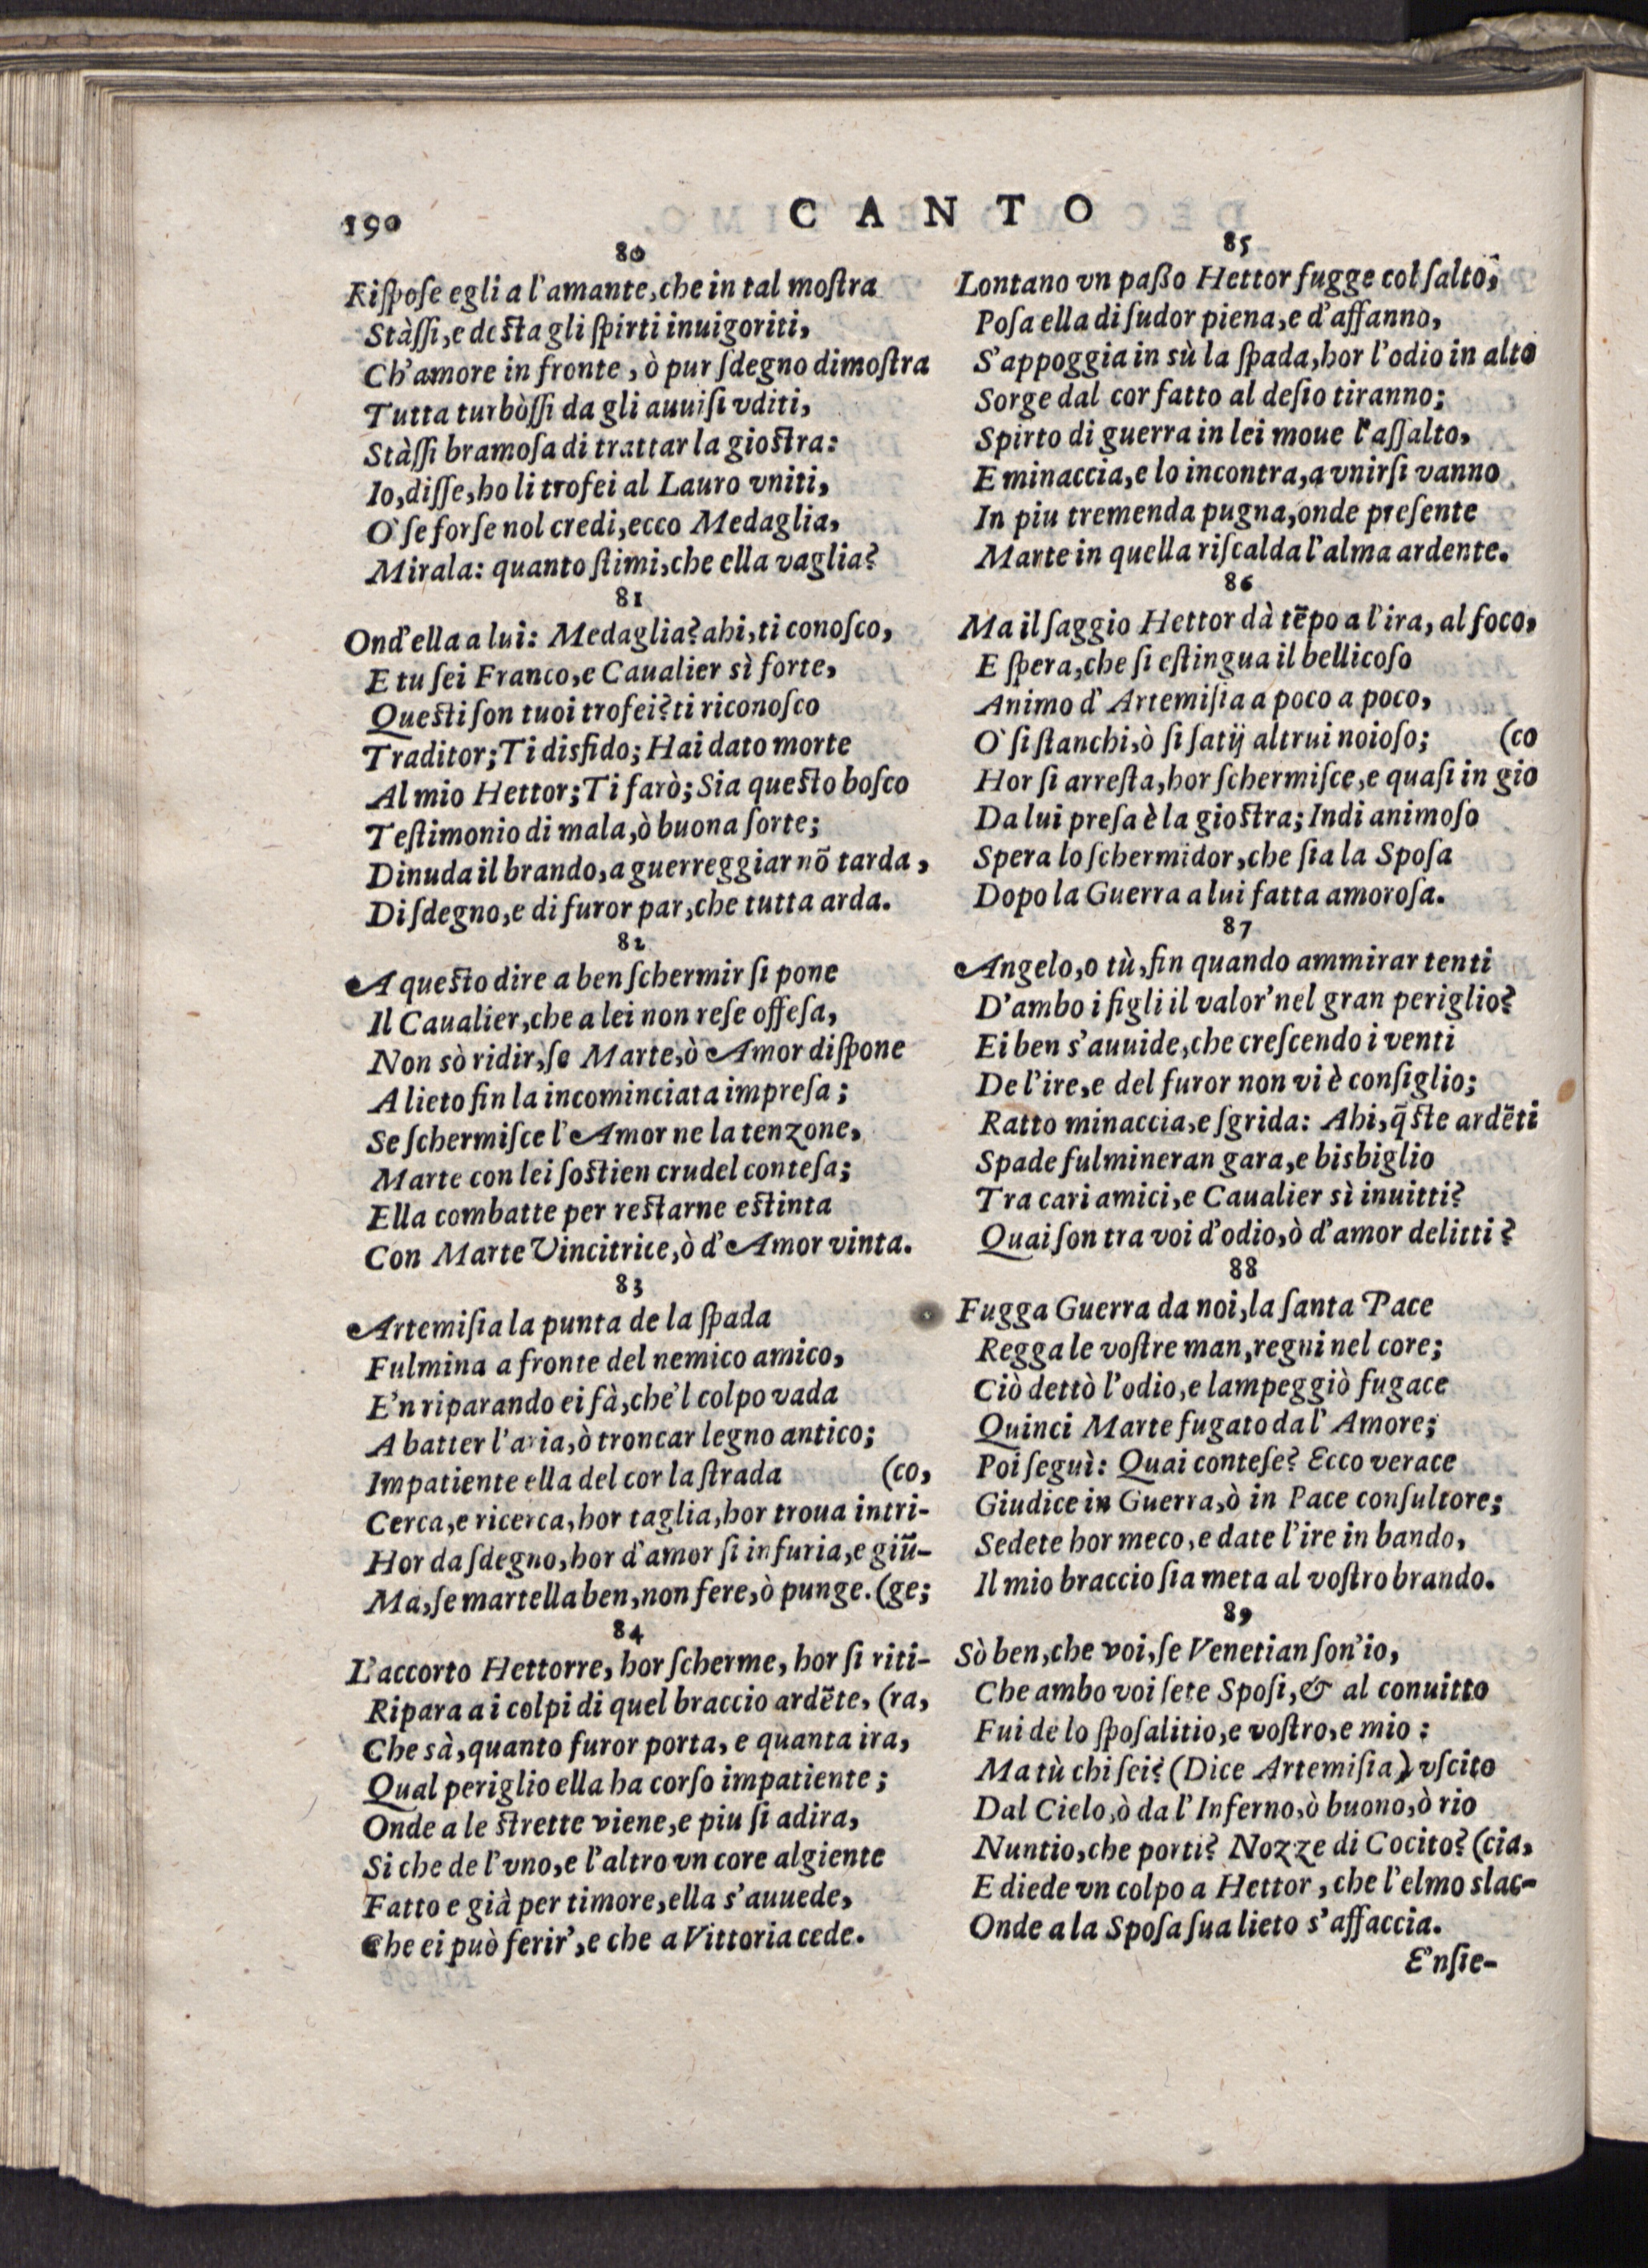 190
CANTO
80
Riſpoſe egli a l'amante, che in tal moſtra
Stàſſi, e deſta gli ſpirti inuigoriti,
Ch'amore in fronte, ò pur ſdegno dimoſtra
Tutta turbòſſi da gli auuiſi vditi,
Stàſſi bramoſa di trattar la gioſtra:
Io, diſſe, ho li trofei al Lauro vniti,
O' ſe forſe nol credi, ecco Medaglia,
Mirala: quanto ſtimi, che ella vaglia?
81
Ond'ella a lui: Medaglia? ahi, ti conoſco,
E tu ſei Franco, e Caualier sì forte,
Queſti ſon tuoi trofei? ti riconoſco
Traditor; Ti disfido; Hai dato morte
Al mio Hettor; Ti farò; Sia queſto boſco
Teſtimonio di mala, ò buona ſorte;
Dinuda il brando, a guerreggiar nõ tarda,
Di ſdegno, e di furor par, che tutta arda.
82
A queſto dire a ben ſchermir ſi pone
Il Caualier, che a lei non reſe offeſa,
Non sò ridir, ſe Marte, ò Amor diſpone
A lieto fin la incominciata impreſa;
Se ſchermiſce l'Amor ne la tenzone,
Marte con lei ſoſtien crudel conteſa;
Ella combatte per reſtarne eſtinta
Con Marte Vincitrice, ò d'Amor vinta.
83
Artemiſia la punta de la ſpada
Fulmina a fronte del nemico amico,
E'n riparando ei fà, che'l colpo vada
A batter l'aria, ò troncar legno antico;
Impatiente ella del cor la ſtrada (co,
Cerca, e ricerca, hor taglia, hor troua intri-
Hor da ſdegno, hor d'amor ſi infuria, e giũ-
Ma, ſe martella ben, non fere, ò punge. (ge;
84
L'accorto Hettorre, hor ſcherme, hor ſi riti-
Ripara a i colpi di quel braccio ardẽte, (ra,
Che sà, quanto furor porta, e quanta ira,
Qual periglio ella ha corſo impatiente;
Onde a le ſtrette viene, e piu ſi adira,
Si che de l'vno, e l'altro vn core algiente
Fatto e già per timore, ella s'auuede,
Che ei può ferir', e che a Vittoria cede.
85
Lontano vn paßo Hettor fugge col ſalto;
Poſa ella di ſudor piena, e d'affanno,
S'appoggia in sù la ſpada, hor l'odio in alto
Sorge dal cor fatto al deſio tiranno;
Spirto di guerra in lei moue l'aſſalto,
E minaccia, e lo incontra, a vnirſi vanno
In piu tremenda pugna, onde preſente
Marte in quella riſcalda l'alma ardente.
86
Ma il ſaggio Hettor dà tẽpo a l'ira, al foco,
E ſpera, che ſi eſtingua il bellicoſo
Animo d'Artemiſia a poco a poco,
O' ſi ſtanchi, ò ſi ſatij altrui noioſo; (co
Hor ſi arreſta, hor ſchermiſce, e quaſi in gio
Da lui preſa è la gioſtra; Indi animoſo
Spera lo ſchermidor, che ſia la Spoſa
Dopo la Guerra a lui fatta amoroſa.
87
Angelo, o tù, fin quando ammirar tenti
D'ambo i figli il valor' nel gran periglio?
Ei ben s'auuide, che creſcendo i venti
De l'ire, e del furor non vi è conſiglio;
Ratto minaccia, e ſgrida: Ahi, q̃ſte ardẽti
Spade fulmineran gara, e bisbiglio
Tra cari amici, e Caualier sì inuitti?
Quai ſon tra voi d'odio, ò d'amor delitti?
88
Fugga Guerra da noi, la ſanta Pace
Regga le voſtre man, regni nel core;
Ciò dettò l'odio, e lampeggiò fugace
Quinci Marte fugato da l'Amore;
Poi ſeguì: Quai conteſe? Ecco verace
Giudice in Guerra, ò in Pace conſultore;
Sedete hor meco, e date l'ire in bando,
Il mio braccio ſia meta al voſtro brando.
89
Sò ben, che voi, ſe Venetian ſon'io,
Che ambo voi ſete Spoſi, & al conuitto
Fui de lo ſpoſalitio, e voſtro, e mio:
Ma tù chi ſei? (Dice Artemiſia) vſcito
Dal Cielo, ò da l'Inferno, ò buono, ò rio
Nuntio, che porti? Nozze di Cocito? (cia,
E diede vn colpo a Hettor, che l'elmo slac-
Onde a la Spoſa ſua lieto s'affaccia.
E'nſie-